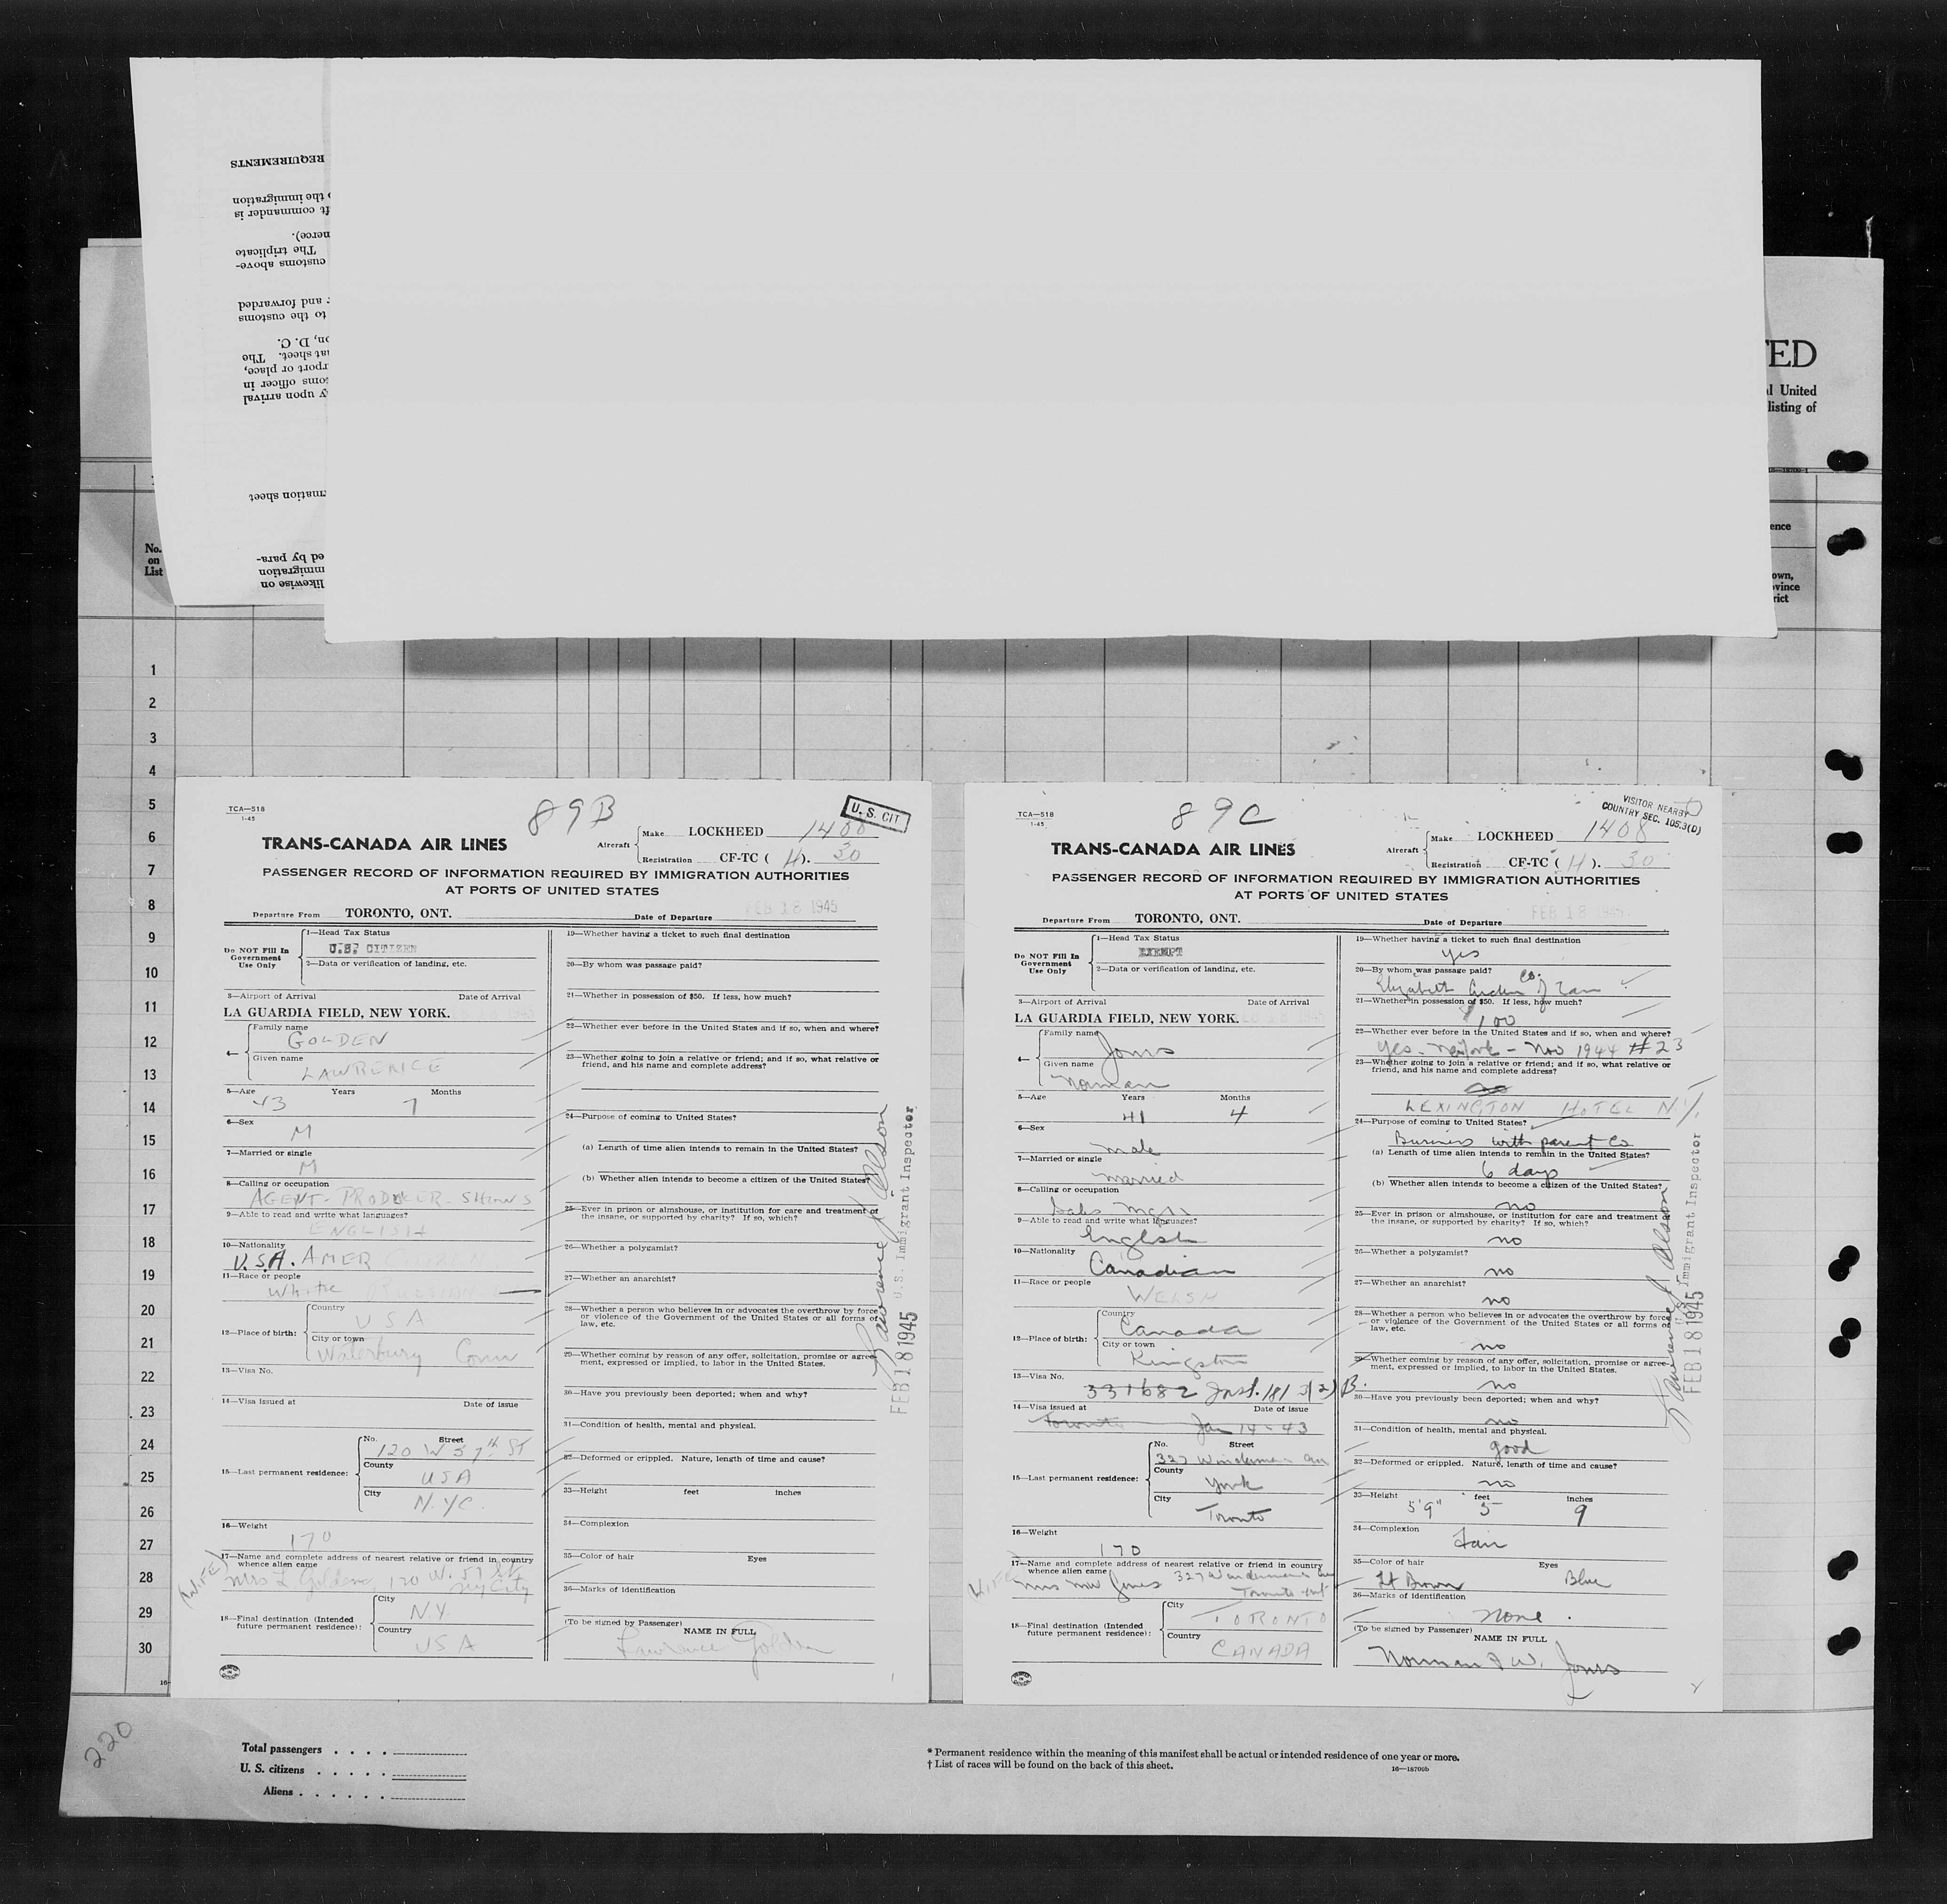 REQUIREMENTS
to the immigration
ft commander is
merce).
The triplicate
customs above-
r and forwarded
to the customs
on, D. C.
at sheet. The
rport or place,
toms officer in
y upon arrival
rmation sheet
ed by para-
immigration
likewise on
TED
al United
listing of
No.
on
List
ence
own,
ovince
rict
1
2
3
4
5
6
7
8
9
10
11
12
13
14
15
16
17
18
19
20
21
22
23
24
25
26
27
28
29
30
TCA—518
1-45
89B
U. S. CIT
TRANS-CANADA AIR LINES
Aircraft
Make LOCKHEED 1408
Registration CF-TC ( H ). 30
PASSENGER RECORD OF INFORMATION REQUIRED BY IMMIGRATION AUTHORITIES
AT PORTS OF UNITED STATES
Departure From TORONTO, ONT. Date of Departure FEB 18 1945
Do NOT Fill In
Government
Use Only
1—Head Tax Status
U.S. CITIZEN
2—Data or verification of landing, etc.
3—Airport of Arrival Date of Arrival
LA GUARDIA FIELD, NEW YORK.
4—
Family name
GOLDEN
Given name
LAWRENCE
5—Age Years Months
43 7
6—Sex
M
7—Married or single
M
8—Calling or occupation
AGENT - PRODUCER - SHOWS
9—Able to read and write what languages?
ENGLISH
10—Nationality
U.S.A. AMER
11—Race or people
White
12—Place of birth:
Country
USA
City or town
Waterbury Conn
13—Visa No.
14—Visa issued at Date of issue
15—Last permanent residence:
No. Street
120 W 57th ST
County
USA
City
N.YC.
16—Weight
170
17—Name and complete address of nearest relative or friend in country
whence alien came
(WIFE) Mrs L Golden, 120 W. 57 St
NY City
18—Final destination (Intended
future permanent residence):
City
NY
Country
USA
19—Whether having a ticket to such final destination
20—By whom was passage paid?
21—Whether in possession of $50. If less, how much?
22—Whether ever before in the United States and if so, when and where?
23—Whether going to join a relative or friend; and if so, what relative or
friend, and his name and complete address?
24—Purpose of coming to United States?
(a) Length of time alien intends to remain in the United States?
(b) Whether alien intends to become a citizen of the United States?
25—Ever in prison or almshouse, or institution for care and treatment of
the insane, or supported by charity? If so, which?
26—Whether a polygamist?
27—Whether an anarchist?
28—Whether a person who believes in or advocates the overthrow by force
or violence of the Government of the United States or all forms of
law, etc.
29—Whether coming by reason of any offer, solicitation, promise or agree-
ment, expressed or implied, to labor in the United States.
30—Have you previously been deported; when and why?
31—Condition of health, mental and physical.
32—Deformed or crippled. Nature, length of time and cause?
33—Height feet inches
34—Complexion
35—Color of hair Eyes
36—Marks of identification
(To be signed by Passenger)
NAME IN FULL
Lawrence Golden
FEB 18 1945 U.S. Immigrant Inspector
TCA—518
1-45
89C
VISITOR NEARBY
COUNTRY SEC. 105.3(D)
TRANS-CANADA AIR LINES
Aircraft
Make LOCKHEED 1408
Registration CF-TC ( H ). 30
PASSENGER RECORD OF INFORMATION REQUIRED BY IMMIGRATION AUTHORITIES
AT PORTS OF UNITED STATES
Departure From TORONTO, ONT. Date of Departure FEB 18 1945
Do NOT Fill In
Government
Use Only
1—Head Tax Status
EXEMPT
2—Data or verification of landing, etc.
3—Airport of Arrival Date of Arrival
LA GUARDIA FIELD, NEW YORK.
4—
Family name
Jones
Given name
Norman
5—Age Years Months
41 4
6—Sex
male
7—Married or single
married
8—Calling or occupation
Sales Man
9—Able to read and write what languages?
English
10—Nationality
Canadian
11—Race or people
WELSH
12—Place of birth:
Country
Canada
City or town
Kingston
13—Visa No.
331682 Inst. 181 3(2) B.
14—Visa issued at Date of issue
Toronto Jan 14 - 43
15—Last permanent residence:
No. Street
327 Windermere Ave
County
York
City
Toronto
16—Weight
170
17—Name and complete address of nearest relative or friend in country
whence alien came
WIFE Mrs NW Jones 327 Windermere Ave
Toronto Ont
18—Final destination (Intended
future permanent residence):
City
TORONTO
Country
CANADA
19—Whether having a ticket to such final destination
yes
20—By whom was passage paid?
Elizabeth Arden Co. of Can
21—Whether in possession of $50. If less, how much?
$100
22—Whether ever before in the United States and if so, when and where?
Yes - New York - Nov 1944 #23
23—Whether going to join a relative or friend; and if so, what relative or
friend, and his name and complete address?
no
LEXINGTON HOTEL N.Y.
24—Purpose of coming to United States?
Business with parent Co
(a) Length of time alien intends to remain in the United States?
6 days
(b) Whether alien intends to become a citizen of the United States?
no
25—Ever in prison or almshouse, or institution for care and treatment of
the insane, or supported by charity? If so, which?
no
26—Whether a polygamist?
no
27—Whether an anarchist?
no
28—Whether a person who believes in or advocates the overthrow by force
or violence of the Government of the United States or all forms of
law, etc.
no
29—Whether coming by reason of any offer, solicitation, promise or agree-
ment, expressed or implied, to labor in the United States.
no
30—Have you previously been deported; when and why?
no
31—Condition of health, mental and physical.
good
32—Deformed or crippled. Nature, length of time and cause?
no
33—Height feet inches
5'9" 5 9
34—Complexion
Fair
35—Color of hair Eyes
Lt Brown Blue
36—Marks of identification
none.
(To be signed by Passenger)
NAME IN FULL
Norman F W. Jones
FEB 18 1945 U.S. Immigrant Inspector
16
220
Total passengers . . . .
U. S. citizens . . . . .
Aliens . . . . . .
* Permanent residence within the meaning of this manifest shall be actual or intended residence of one year or more.
† List of races will be found on the back of this sheet.
16—18709b